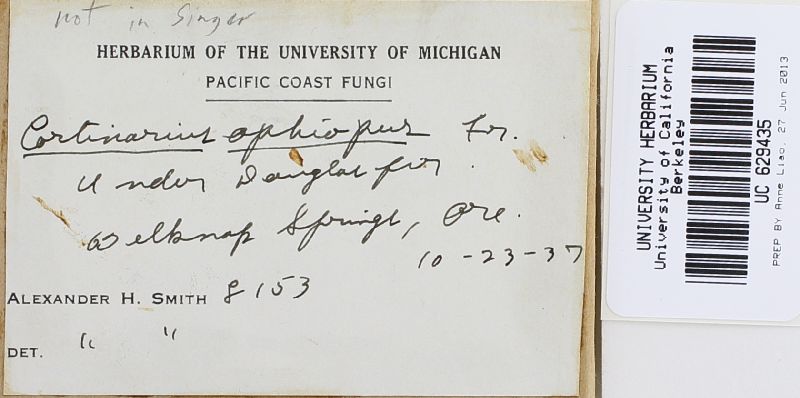 not in Singer
HERBARIUM OF THE UNIVERSITY OF MICHIGAN
PACIFIC COAST FUNGI
Cortinarius ophiopus Fr.
Under Douglas fir
Belknap Springs, Ore.
10-23-37
ALEXANDER H. SMITH 8153
DET. " "
UNIVERSITY HERBARIUM
University of California
Berkeley
UC 629435
PREP BY Anne Liao, 27 Jun 2013